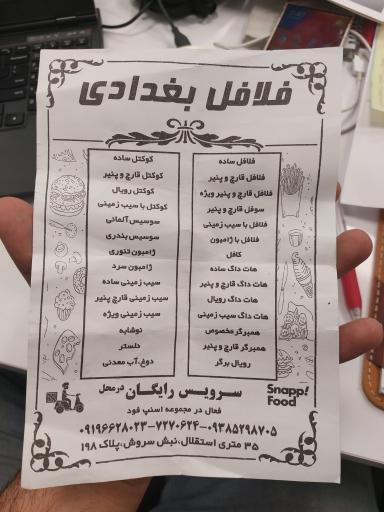 فلافل بغدادی
فلافل ساده
فلافل قارچ و پنیر
فلافل قارچ و پنیر ویژه
سوفل قارچ و پنیر
فلافل با سیب زمینی
فلافل با ژامبون
کافل
هات داگ ساده
هات داگ قارچ و پنیر
هات داگ رویال
هات داگ سیب زمینی
همبرگر مخصوص
همبرگر قارچ و پنیر
رویال برگر
کوکتل ساده
کوکتل قارچ و پنیر
کوکتل رویال
کوکتل با سیب زمینی
سوسیس آلمانی
سوسیس بندری
ژامبون تنوری
ژامبون سرد
سیب زمینی ساده
سیب زمینی قارچ پنیر
سیب زمینی ویژه
نوشابه
دلستر
دوغ،آب معدنی
سرویس رایگان درمحل
Snapp!
Food
فعال در مجموعه اسنپ فود
۰۹۱۹۶۶۲۸۰۲۳-۷۲۷۰۶۲۴-۰۹۳۸۵۲۹۸۷۰۵
۳۵ متری استقلال،نبش سروش،پلاک ۱۹۸